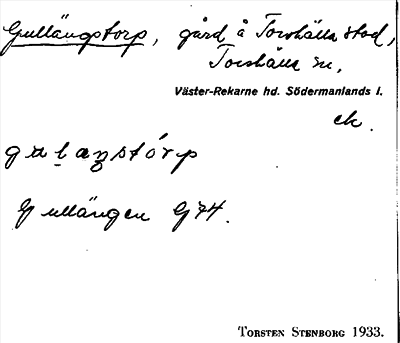 Gullängstorp, gård å Torshälla stad,
Torshälla sn,
Väster-Rekarne hd. Södermanlands l.
ek.
Gullängen G 74.
TORSTEN STENBORG 1933.